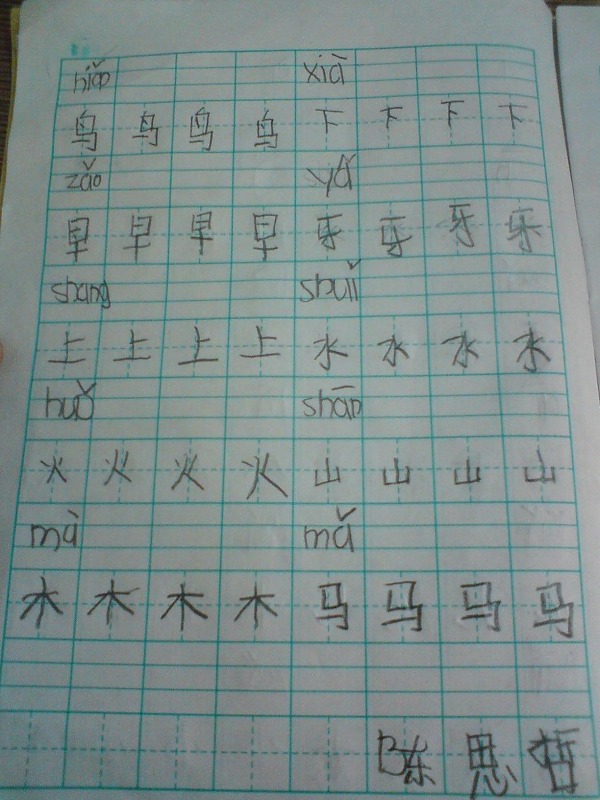 niǎo xià
鸟 鸟 鸟 鸟 下 下 下 下
zǎo yá
早 早 早 早 牙 牙 牙 牙
shang shuǐ
上 上 上 上 水 水 水 水
huǒ shān
火 火 火 火 山 山 山 山
mù mǎ
木 木 木 木 马 马 马 马
陈 思 哲